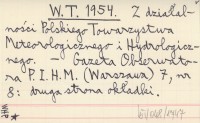 W.T. 1954. Z działal-
ności Polskiego Towarzystwa
Meteorologicznego i Hydrologicz-
nego. — Gazeta Obserwato-
ra P.I.H.M. (Warszawa) 7, nr
8: druga strona okładki.